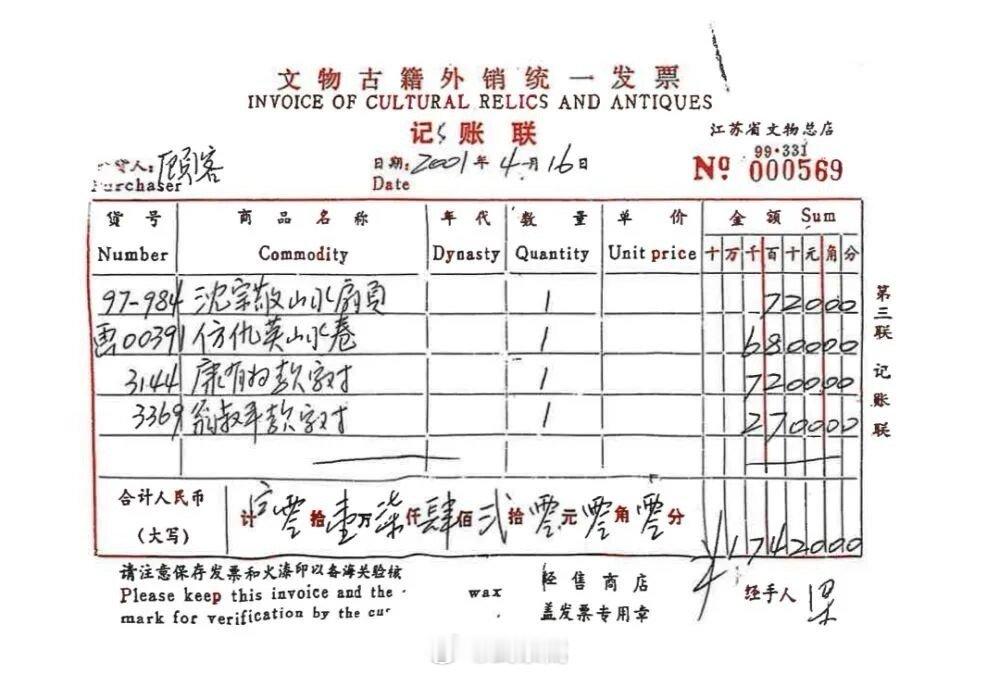 文物古籍外销统一发票
INVOICE OF CULTURAL RELICS AND ANTIQUES
记账联
江苏省文物总店
99·331
货人：顾客 日期：2001年4月16日 Nº 000569
Purchaser Date
货号 商品名称 年代 数量 单价 金额 Sum
Number Commodity Dynasty Quantity Unit price 十万千百十元角分
97-984 沈宗敬山水扇页 1 72000
00391 仿仇英山水卷 1 680000
3144 康有为款字对 1 720000
3369 翁叔平款字对 1 270000
合计人民币（大写） 计 零拾壹万柒仟肆佰弍拾零元零角零分 ¥1742000
请注意保存发票和火漆印以备海关验核
Please keep this invoice and the wax
mark for verification by the cus
经售商店
盖发票专用章
经手人
第三联 记账联